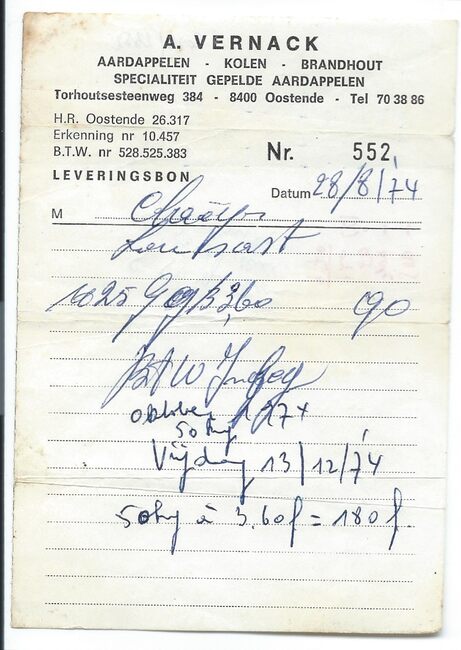 A. VERNACK
AARDAPPELEN - KOLEN - BRANDHOUT
SPECIALITEIT GEPELDE AARDAPPELEN
Torhoutsesteenweg 384 - 8400 Oostende - Tel 70 38 86
H.R. Oostende 26.317
Erkenning nr 10.457
B.T.W. nr 528.525.383
Nr. 552
LEVERINGSBON
Datum 28/8/74
M
25 3,60 90
BTW
50 kg
Vrijdag 13/12/74
50 kg à 3.60 f = 180 f.